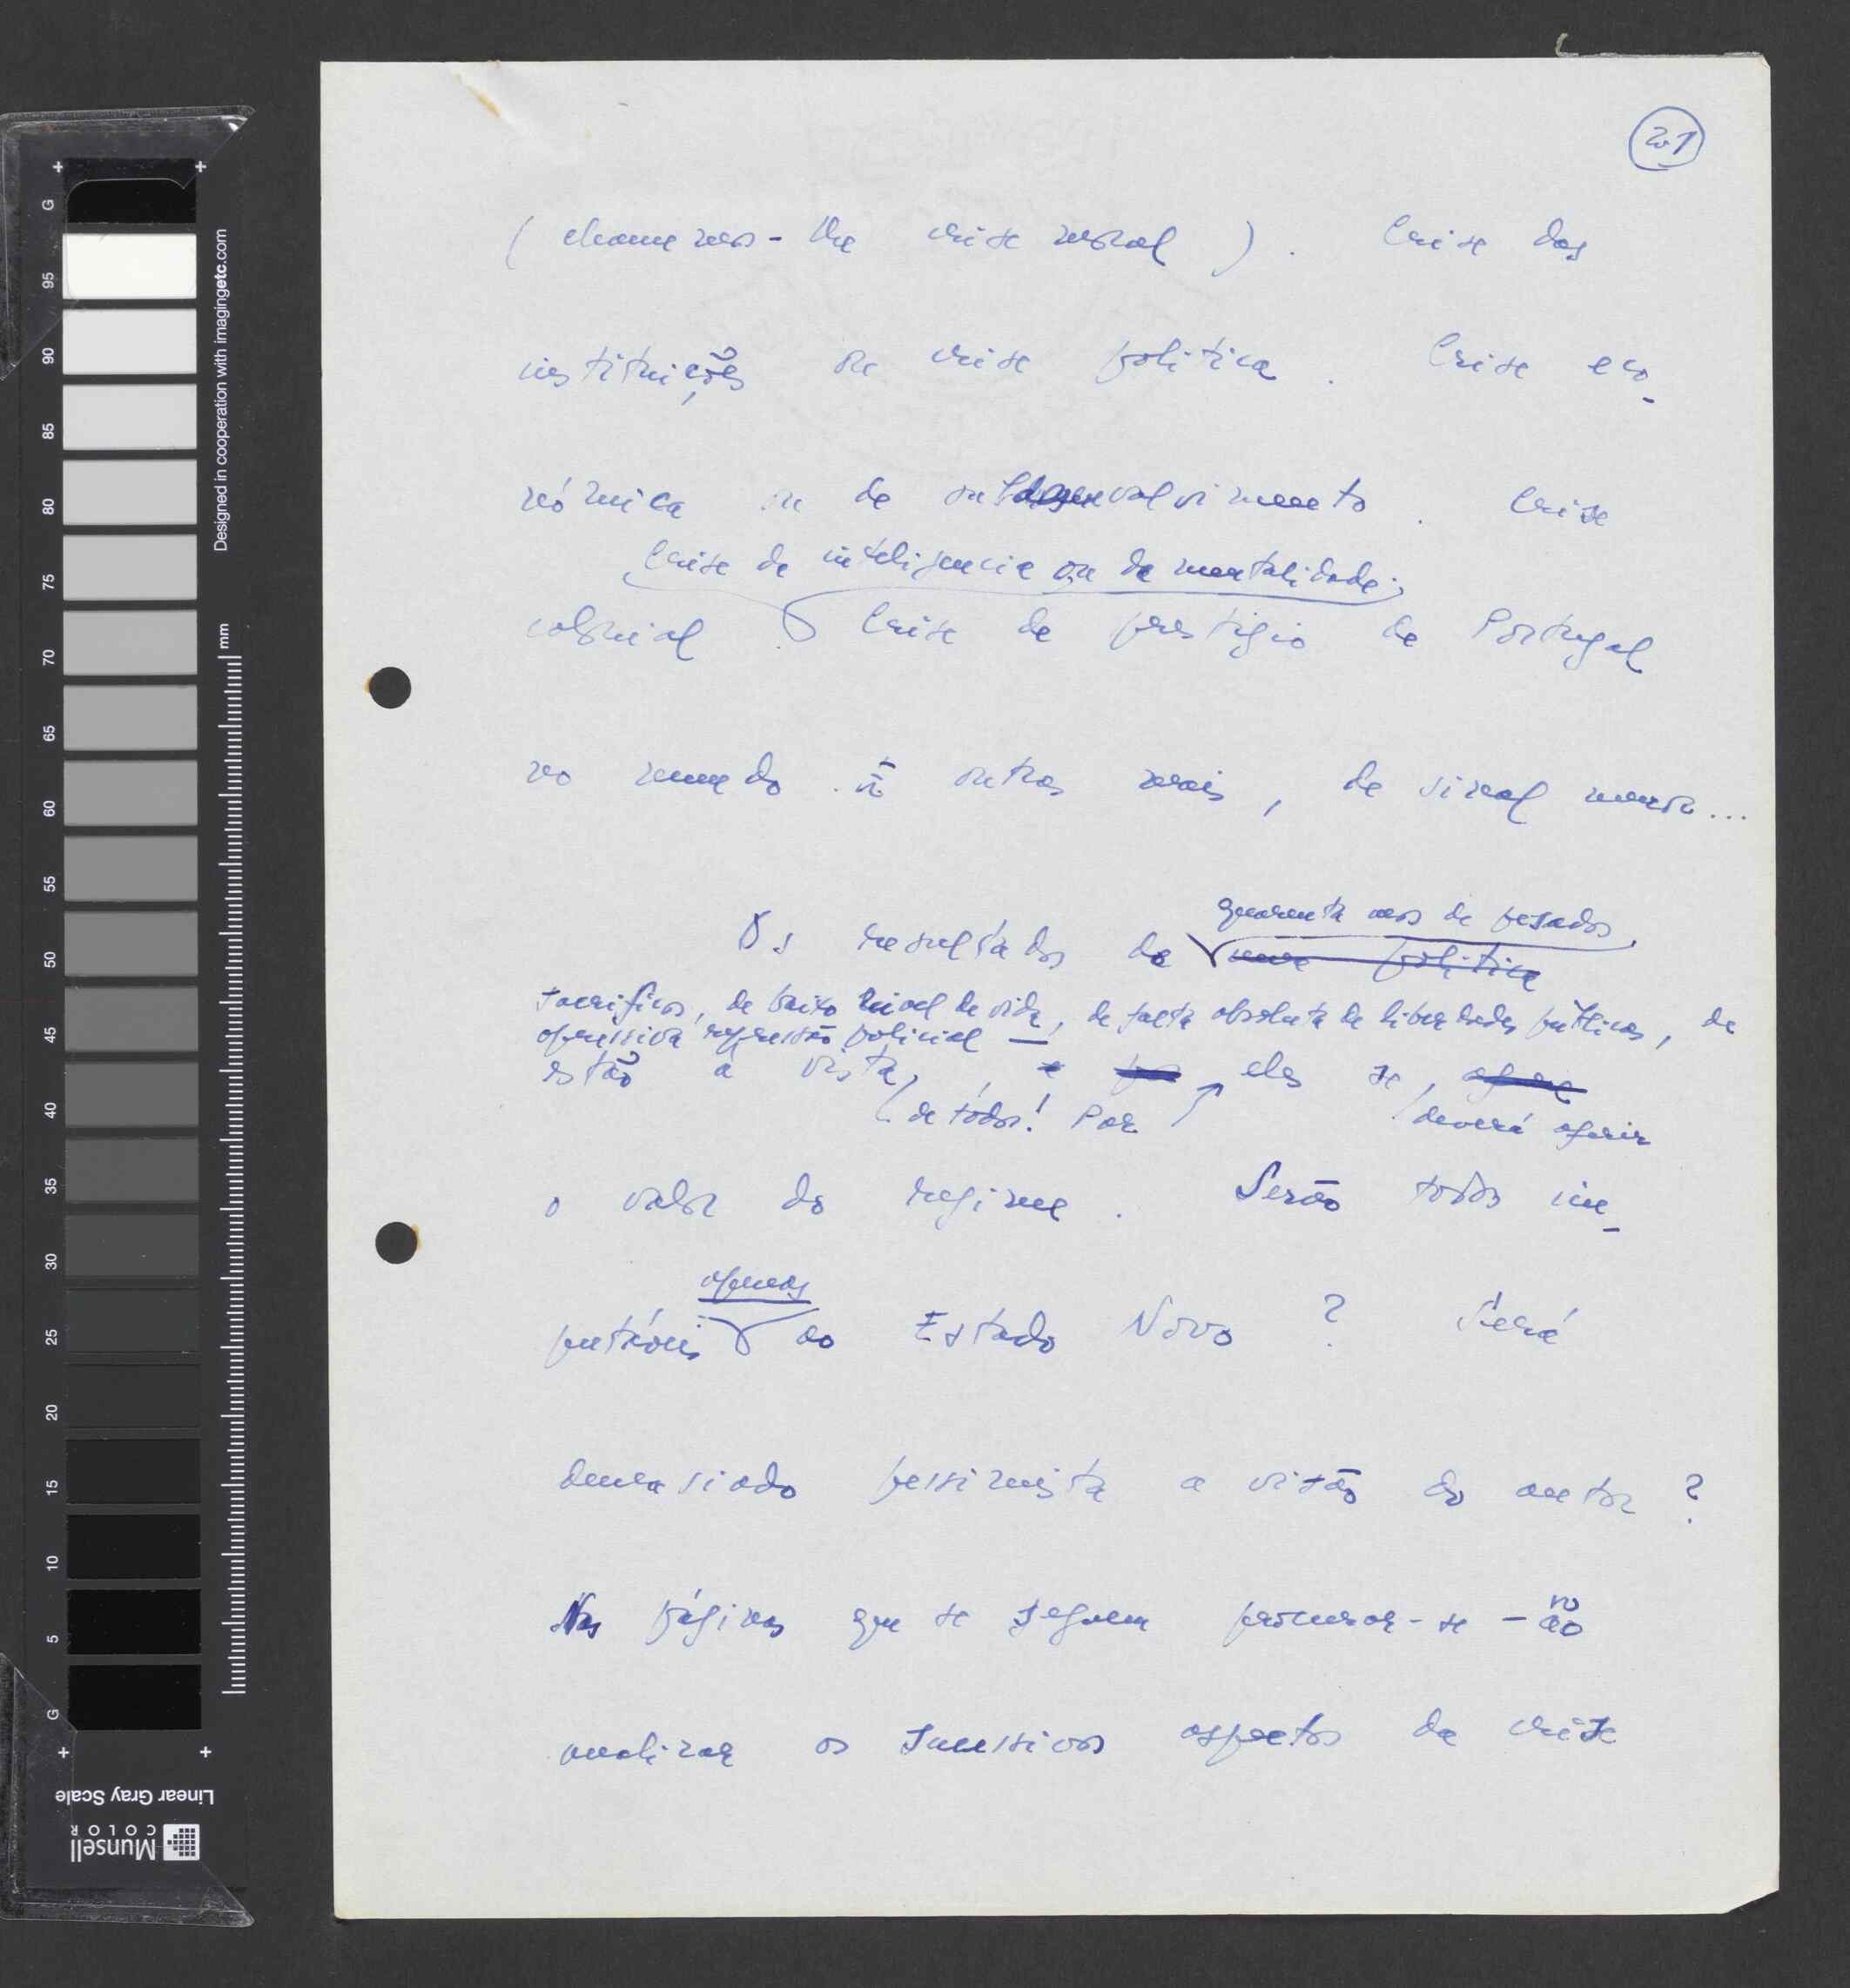 201
(chamemos-lhe crise moral). Crise das
instituições ou crise política. Crise eco-
nómica ou de subdesenvolvimento. Crise
Crise de inteligencia ou de mentalidade.
colonial Crise de prestígio de Portugal
no mundo. E outras mais, de sinal menor...
quarenta anos de pesados
Os resultados de uma politica
sacrificios, de baixo nivel de vida, de falta absoluta de liberdades públicas, de
opressiva repressão policial —
estão à vista, e por eles se
de todos! Por deverá aferir
o valor do regime. Serão todos im-
apenas
putáveis ao Estado Novo? Será
demasiado pessimista a visão do autor?
Nas páginas que se seguem procurar-se-á
analizar os sucessivos aspectos da crise
G
95
90
85
80
75
70
65
60
55
50
45
40
35
30
25
20
15
10
5
G
mm
Designed in cooperation with imagingetc.com
Linear Gray Scale
Munsell
COLOR